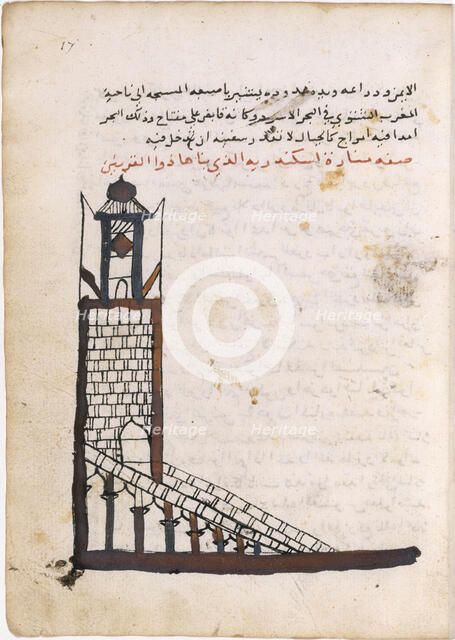 17
الايمن وذراعه ويده ممدوده يشير باصبعه المسبحه الى ناحية
المغرب في البحر الاسود وكانه قابض على مفتاح وذلك البحر
ابدا فيه امواج كالجبال لا تقدر سفينه ان تدخل فيه
صفه مناره اسكندريه الذي بناها ذوا القرنين
Heritage
Heritage
Heritage
Heritage
Heritage
Heritage
Heritage
Heritage